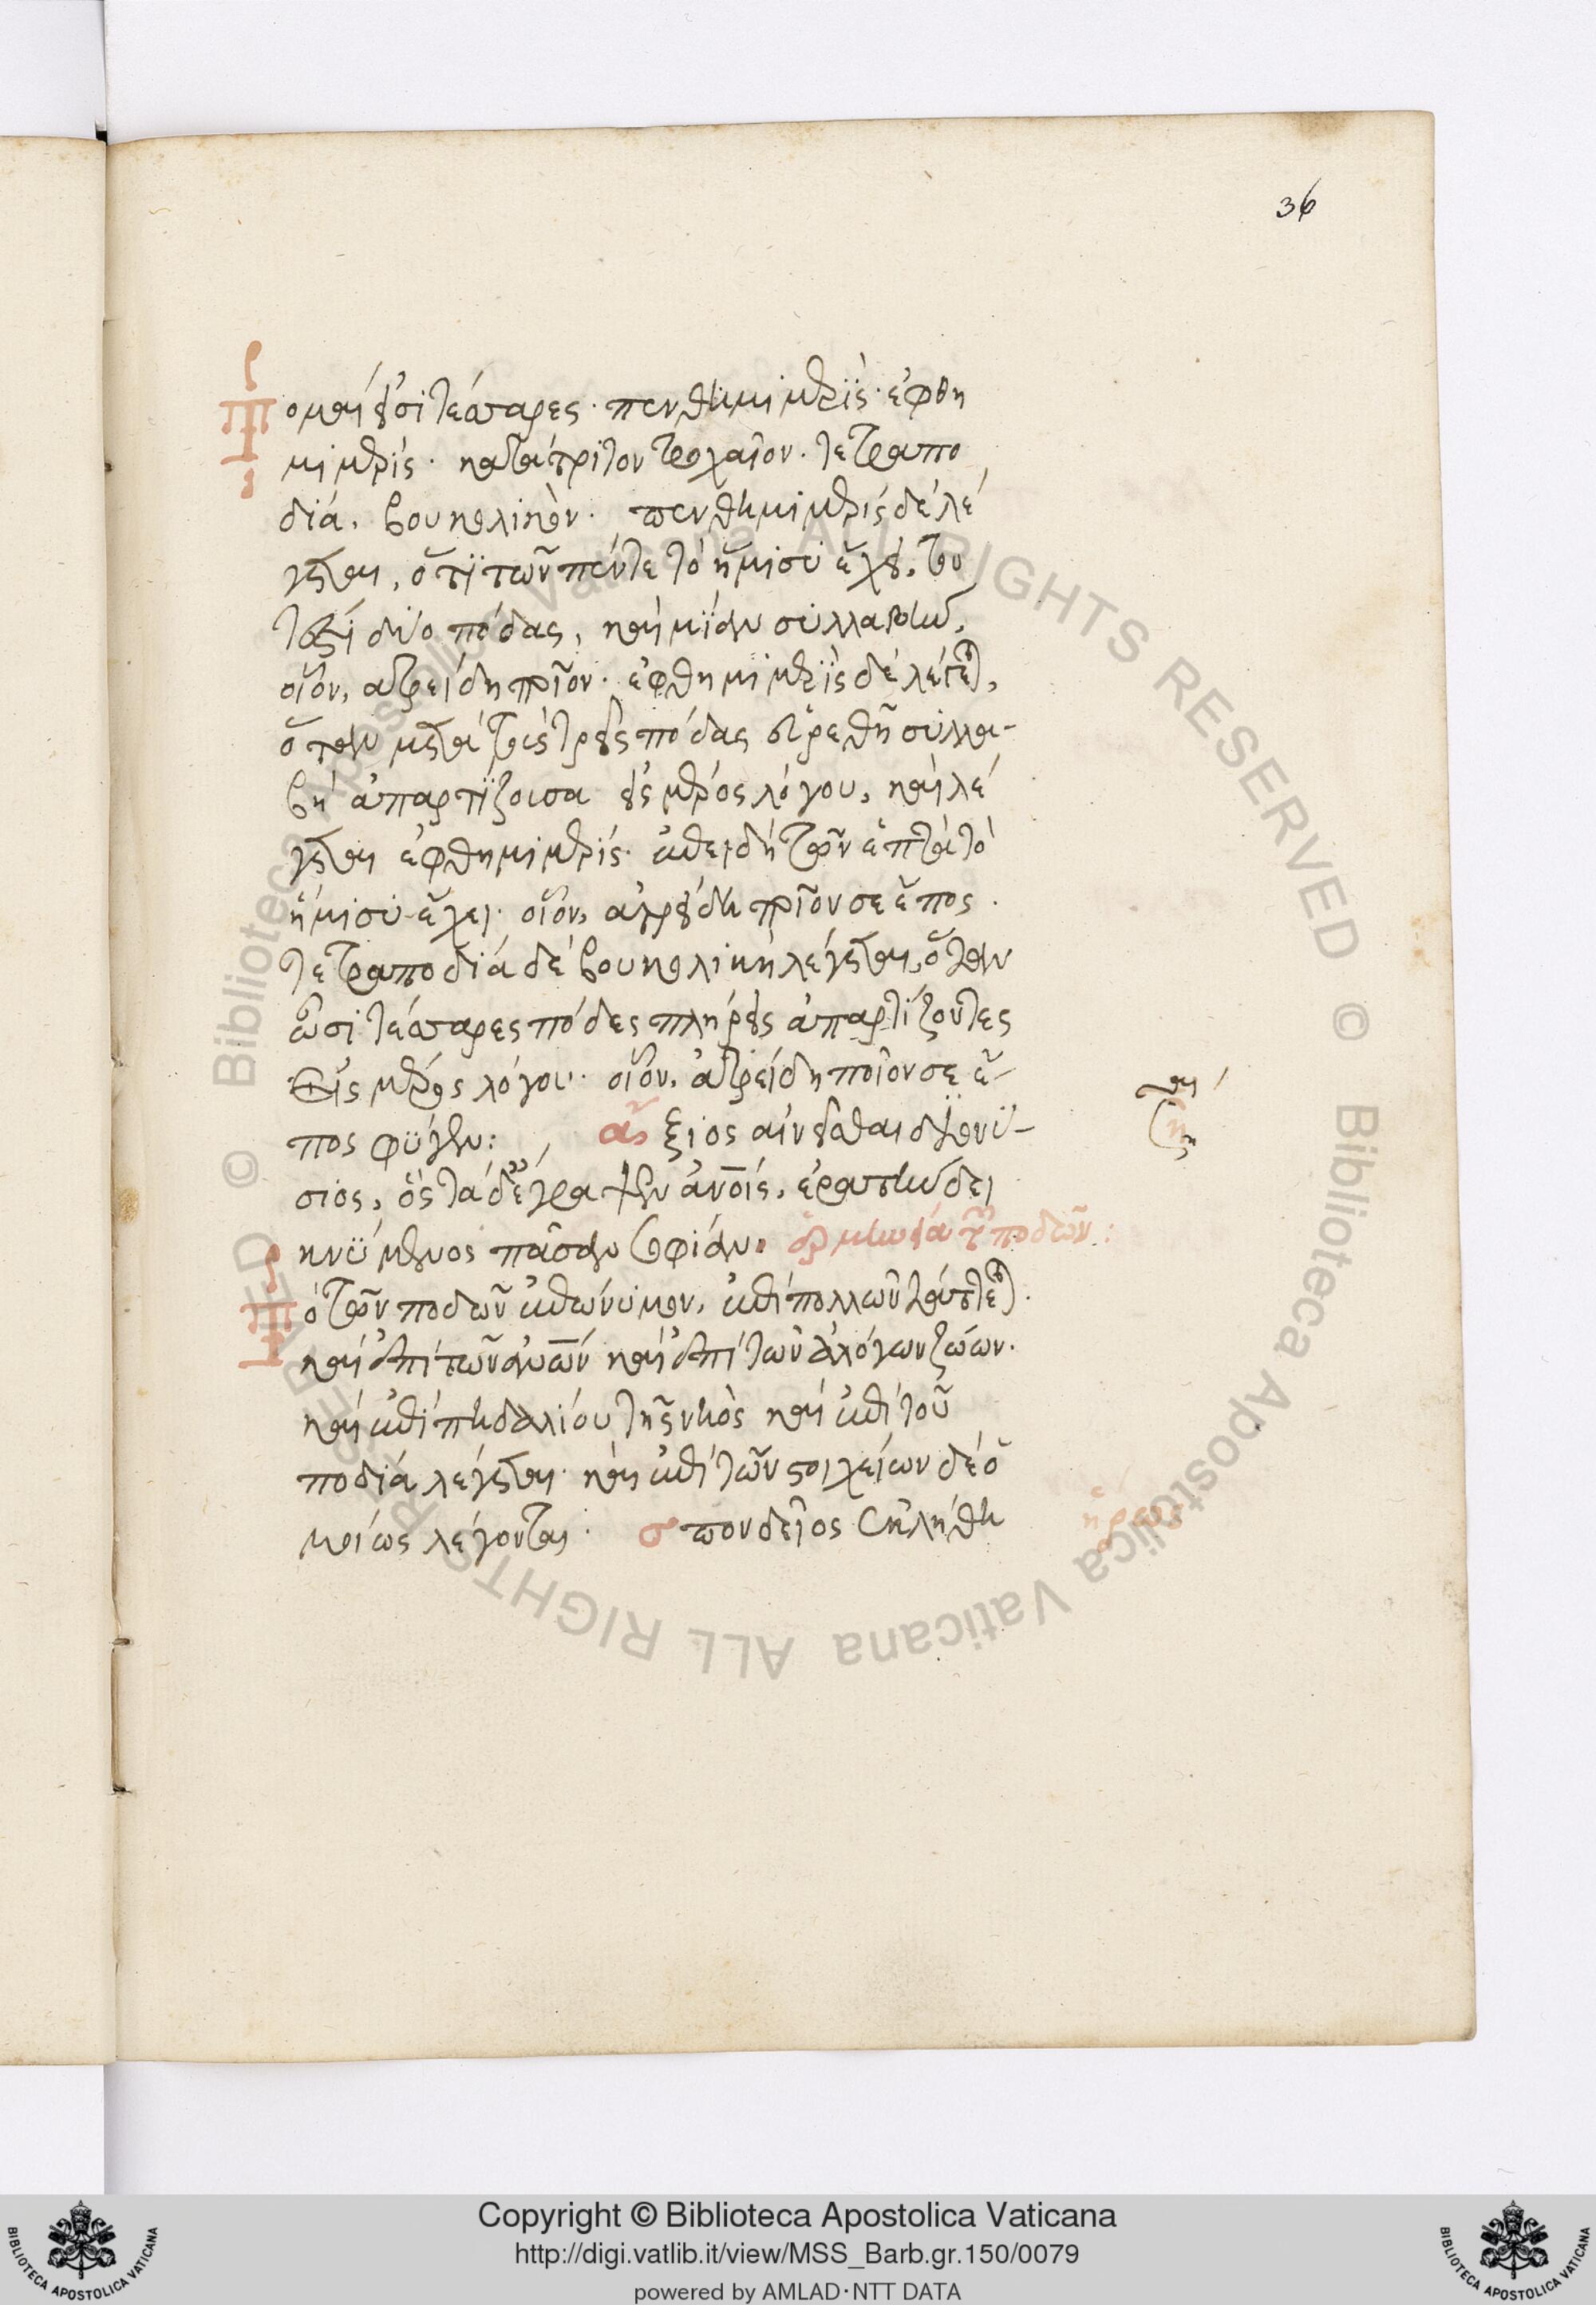 36
Τομαὶ εἰσὶ τέσσαρες· πενθημιμερὶς· ἑφθη
μιμερίς· κατὰ τρίτον τροχαῖον· τετραπο
δία, βουκολικὸν· πενθημιμερὶς δὲ λέ
γεται, ὅτι τῶν πέντε τὸ ἥμισυ ἔχει, του
τέστι δύο πόδας, καὶ μίαν συλλαβὴν,
οἷον, ἀτρείδη ποῖον· ἑφθημιμερὶς δὲ λέγεται,
ὅταν μετὰ τοὺς τρεῖς πόδας εὑρεθῆ συλλα-
βὴ ἀπαρτίζουσα εἰς μέρος λόγου, καὶ λέ
γεται ἑφθημιμερίς· ἐπειδὴ τῶν ἑπτὰ τὸ
ἥμισυ ἔχει· οἷον, ἀτρείδη ποῖον σε ἔπος·
τετραποδία δὲ βουκολικὴ λέγεται, ὅταν
ὦσι τέσσαρες πόδες πλήρεις ἀπαρτίζοντες
εἰς μέρος λόγου· οἷον, ἀτρείδη ποῖον σε ἔ-
πος φύγεν:
ἄξιος αἰνεῖσθαι διονύ-
σιος, ὃς τάδ' ἔγραψεν ἀνοις, ἐραστὴν δει
κνύμενος πᾶσαν σοφίαν·
ἑρμηνεία τῶν ποδῶν:
Τὸ τῶν ποδῶν ἐπώνυμον, ἐπὶ πολλῶν τάττεται·
καὶ ἐπὶ τῶν ἀνων καὶ ἐπὶ τῶν ἀλόγων ζώων·
καὶ ἐπὶ πηδαλίου τῆς νηὸς καὶ ἐπὶ τοῦ
ποδιὰ λέγεται· καὶ ἐπὶ τῶν στοιχείων δὲ ὁ
μοίως λέγονται· σπονδεῖος ἐκλήθη
ἥρως